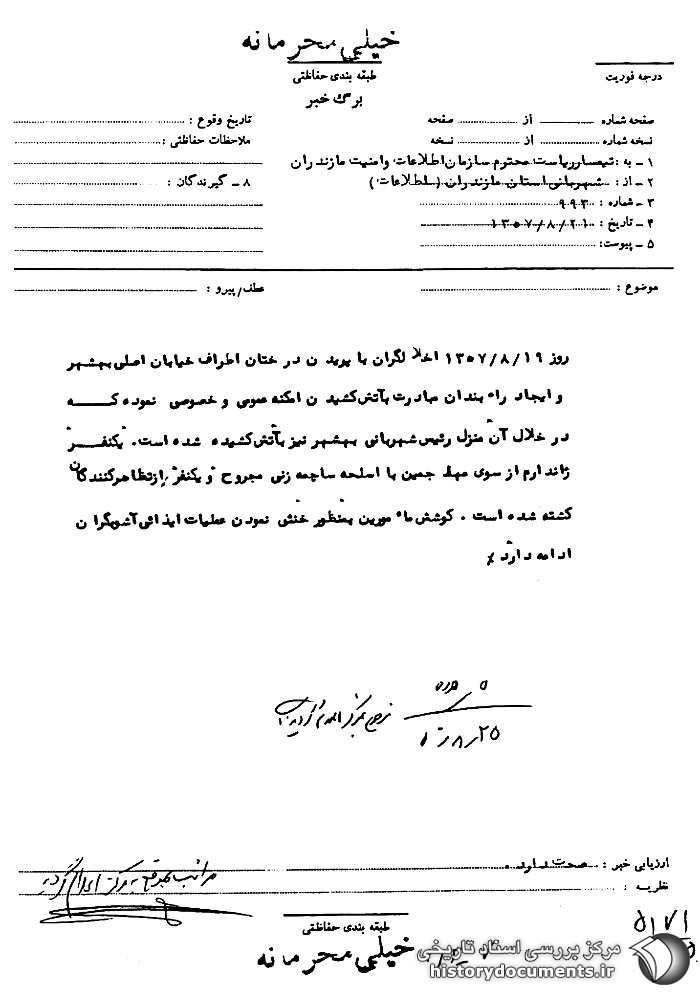 خیلی محرمانه
طبقه بندی حفاظتی
برگ خبر
درجه فوریت
صفحه شماره از صفحه
نسخه شماره از نسخه
۱ – به : تیمسار ریاست محترم سازمان اطلاعات وامنیت مازندران
۲ – از : شهربانی استان مازندران (اطلاعات)
۳ – شماره : ۹۹۳
۴ – تاریخ : ۱۳۵۷/۸/۲۱
۵ – پیوست:
تاریخ وقوع :
ملاحظات حفاظتی :
۸ – گیرندگان :
موضوع :
عطف/پیرو :
روز ۱۳۵۷/۸/۱۹ اخلالگران با بریدن درختان اطراف خیابان اصلی بهشهر
و ایجاد راه بندان مبادرت بآتش کشیدن امکنه عمومی و خصوصی نموده که
در خلال آن منزل رئیس شهربانی بهشهر نیز بآتش کشیده شده است. یکنفر
ژاندارم از سوی مهاجمین با اسلحه ساچمه زنی مجروح و یکنفر از تظاهرکنندگان
کشته شده است . کوشش مامورین بمنظور خنثی نمودن عملیات ایذائی آشوبگران
ادامه دارد
ارزیابی خبر : صحت دارد.
نظریه :
مراتب بموقع به مرکز اعلام گردید
طبقه بندی حفاظتی
خیلی محرمانه
۵۱۷۱
مرکز بررسی اسناد تاریخی
historydocuments.ir